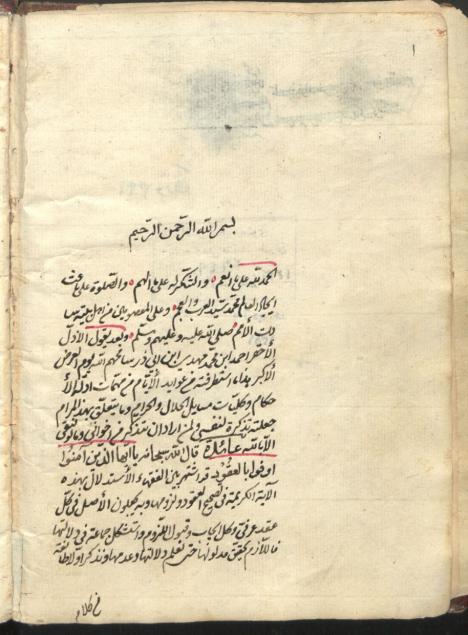 ١
بسم الله الرحمن الرحيم
الحمد لله على ما انعم والشكر له على ما الهم والصلوة على باعث
ايجاد العالم محمد سيد العرب والعجم وعلى المعصومين من اهل بيته
الأمم صلى الله عليه وعليهم وسلم وبعد يقول الاذل
الأحقر احمد ابن محمد مهدي بن ابي ذر سامحهم الله يوم العرض
الأكبر هذا ما استطرفته من عوايد الأيام من مهمات ادلة الأ
حكام وكليات مسايل الحلال والحرام وما يتعلق بهذا المرام
جعلته تذكرة لنفسي ولمن اراد ان يتذكر من اخواني وما توفيقي
الا بالله عائدة قال الله سبحانه يا ايها الذين امنوا
اوفوا بالعقود قد اشتهر بين الفقهاء الاستدلال بهذه
الآية الكريمة في تصحيح العقود ولزومها وبه يجعلون الأصل في كل
عقد عرفي وكل ايجاب وقبول اللزوم واستشكل جماعة في دلالتها
فاللازم تحقيق مدلولها حتى يعلم دلالتها وعدمها ونذكر اولا طائفة
من كلام